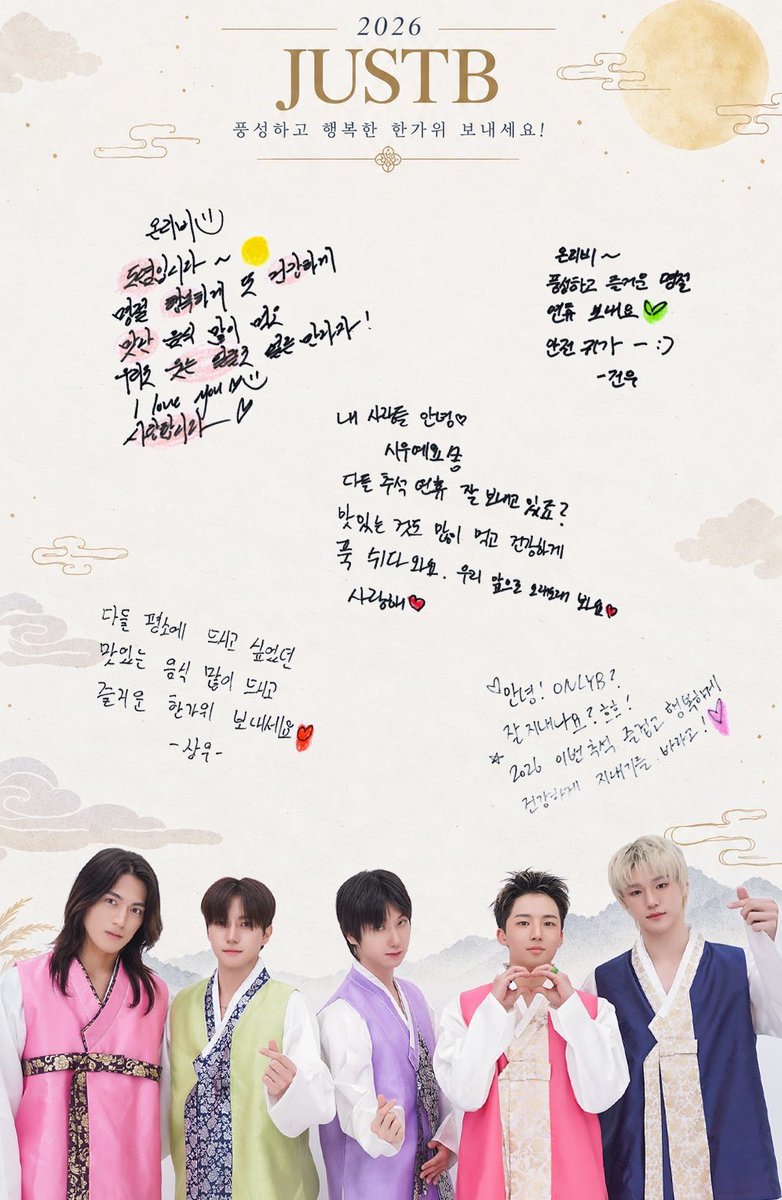 2026
JUSTB
풍성하고 행복한 한가위 보내세요!
온리비
도염입니다~
명절 행복하게 또 건강하게
맛난 음식 많이 먹고
우리 웃는 얼굴로 만나자!
I love you
사랑합니다
온리비~
풍성하고 즐거운 명절
연휴 보내요
안전 귀가 - :)
-건우
내 사람들 안녕♡
시우예요
다들 추석 연휴 잘 보내고 있죠?
맛있는 것도 많이 먹고 건강하게
푹 쉬다 와요. 우리 앞으로 오래오래 봐요♥
사랑해♥
다들 평소에 드시고 싶었던
맛있는 음식 많이 드시고
즐거운 한가위 보내세요♥
-상우-
♡안녕! ONLYB?
잘 지내나요? 흐흐!
☆ 2026 이번 추석 즐겁고 행복하게
건강하게 지내기를 바라고!